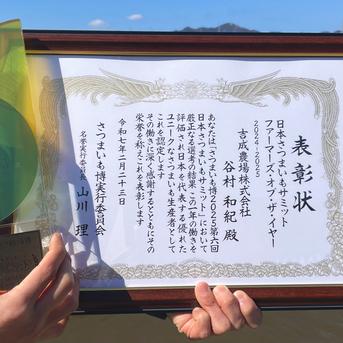 表彰状
日本さつまいもサミット
ファーマーズ・オブ・ザ・イヤー
2024-2025
吉成農場株式会社
谷村 和紀 殿
あなたは「さつまいも博2025第六回
日本さつまいもサミット」において
厳正なる選考の結果この一年の働きを
評価され日本を代表する優れた
ユニークなさつまいも生産者として
これを認定します
その働きに深く感謝するとともにその
栄誉を称えこれを表彰します
令和七年二月二十三日
さつまいも博実行委員会
名誉実行委員長 山川 理